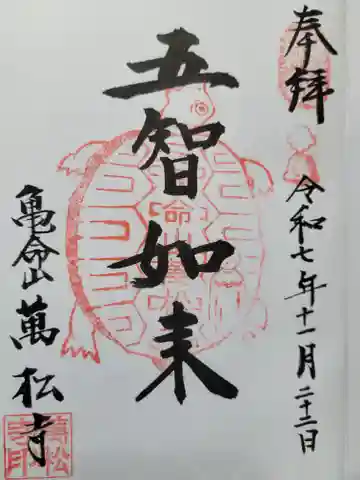 奉拝
令和七年十一月二十二日
五智如来
亀命山
萬松寺